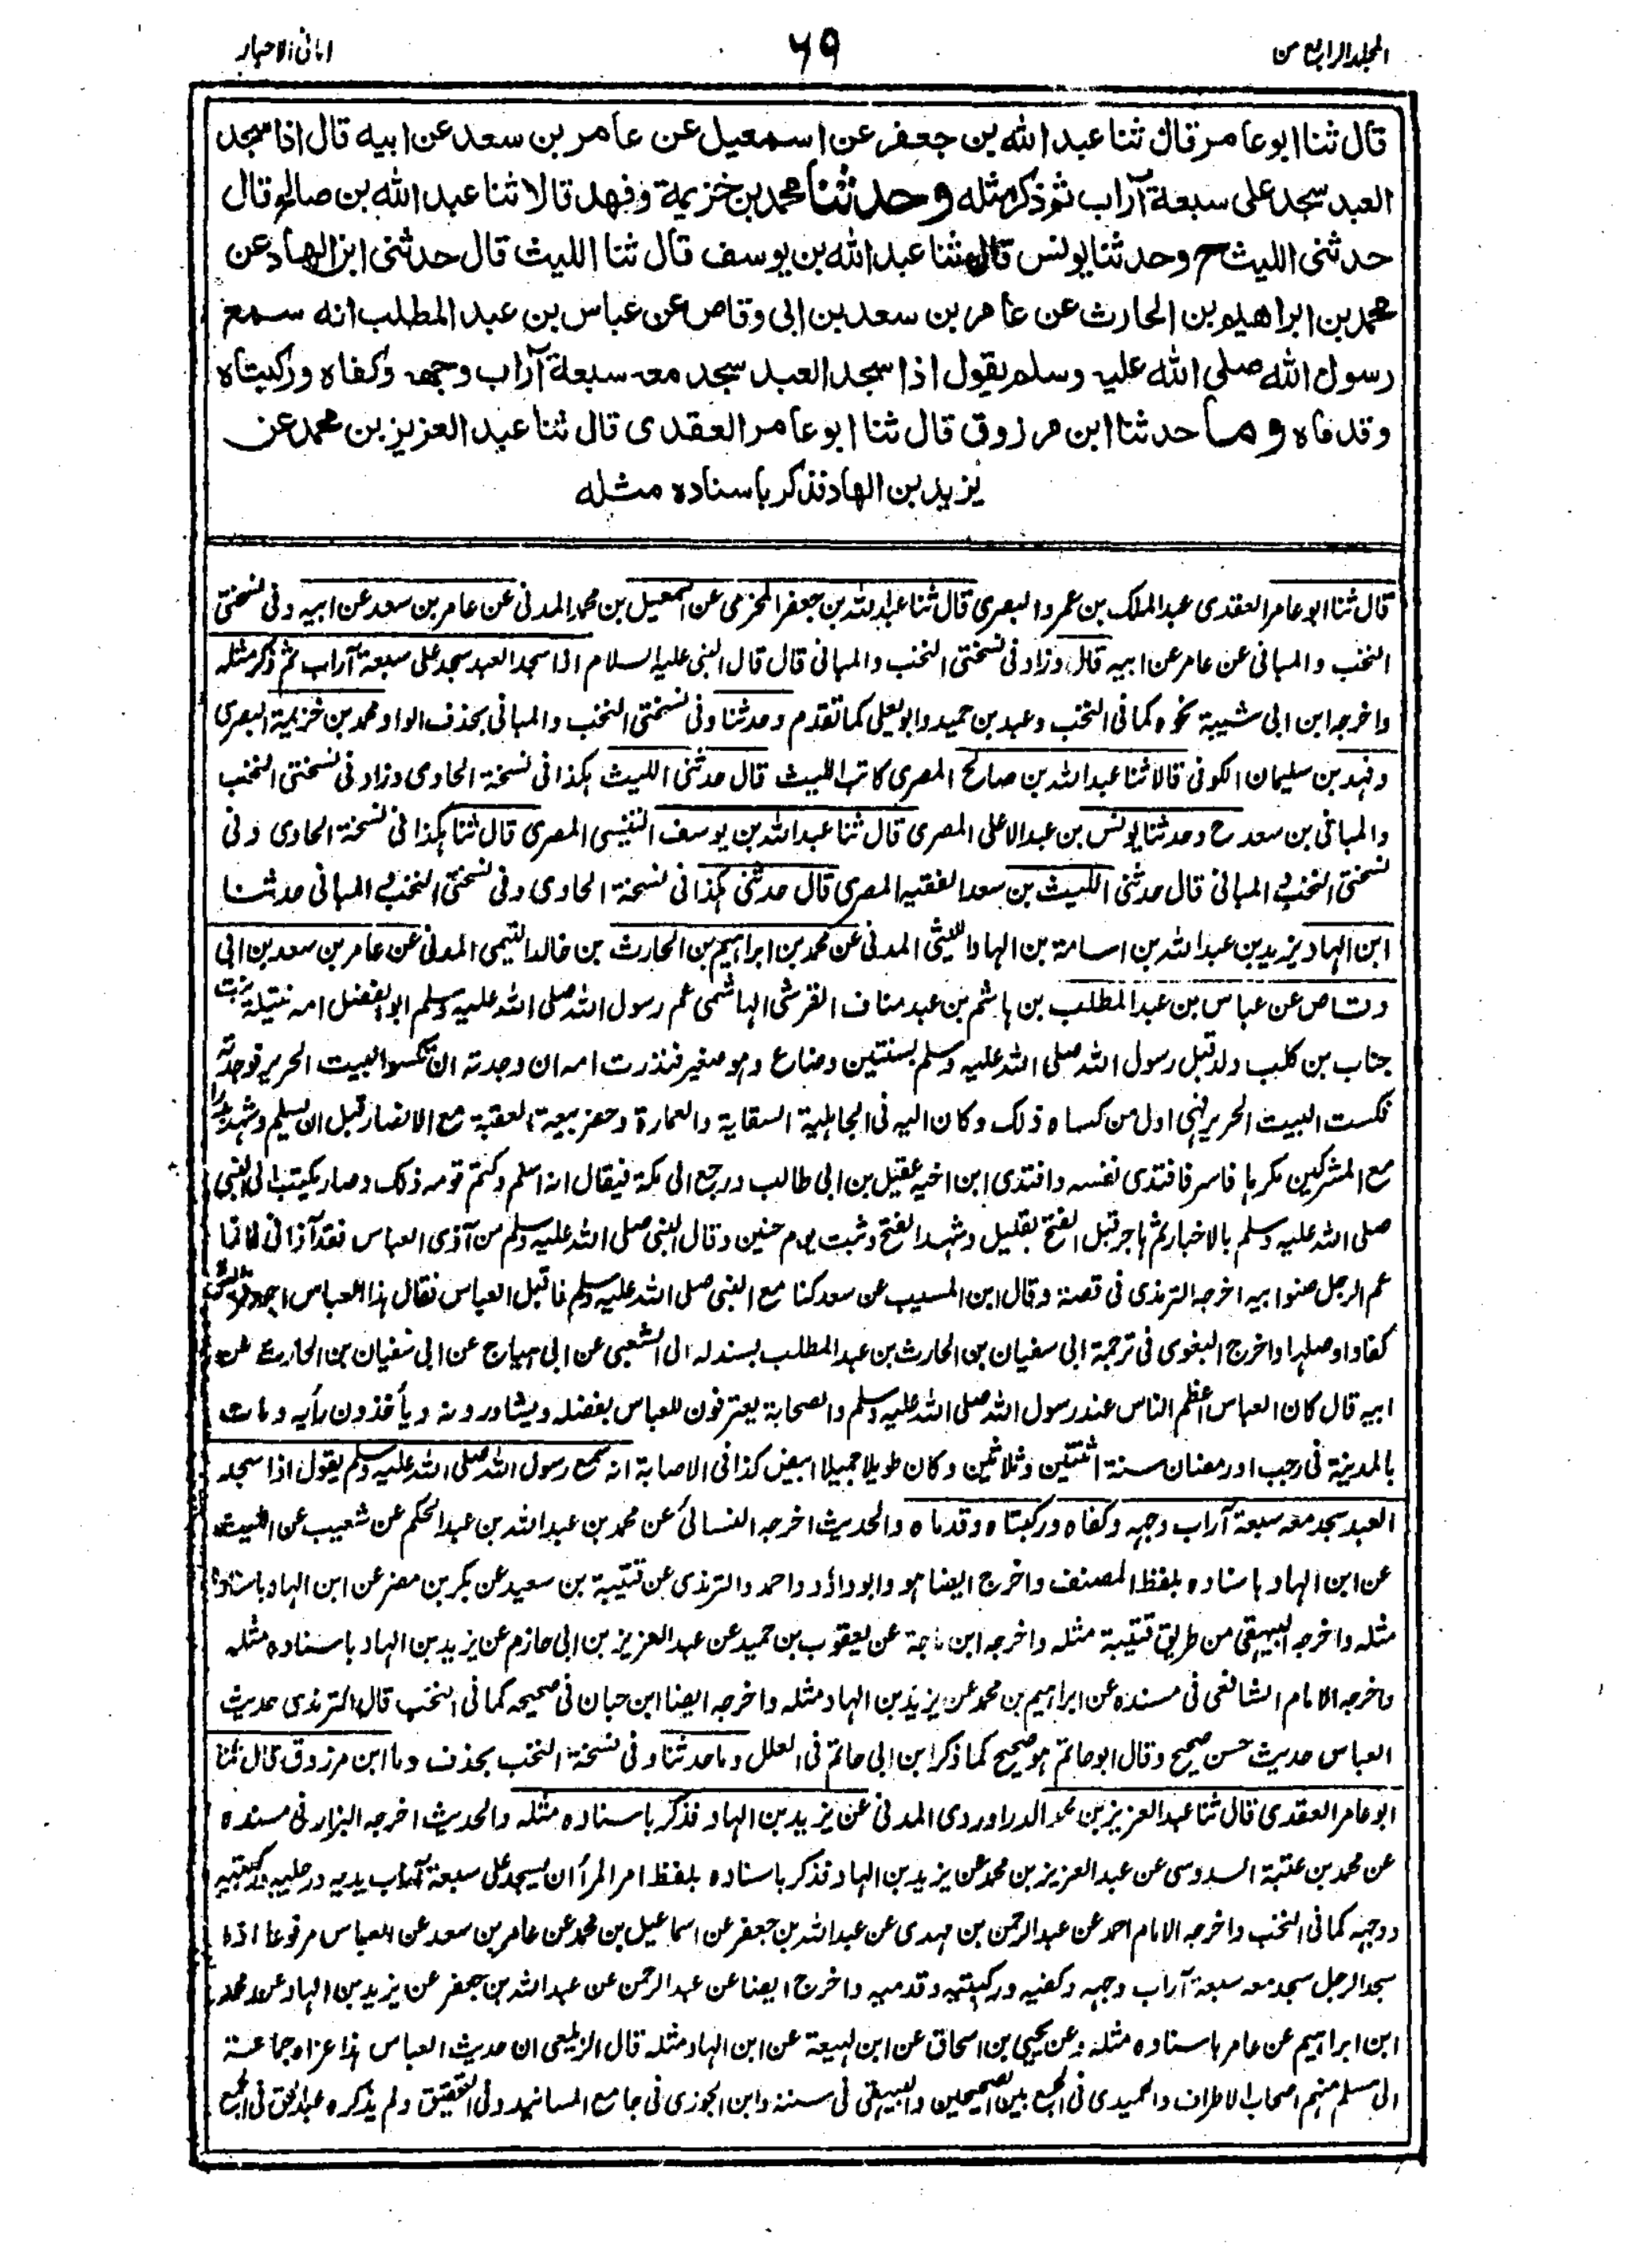 المجلد الرابع من
٦٩
امانی الاحبار
قال ثنا ابو عامر قال ثنا عبد الله بن جعفر عن اسمعيل عن عامر بن سعد عن ابيه قال اذا سجد
العبد سجد على سبعة آراب ثم ذكر مثله وحدثنا محمد بن خزيمة وفهد قالا ثنا عبد الله بن صالح قال
حدثنى الليث ح وحدثنا يونس قال ثنا عبد الله بن يوسف قال ثنا الليث قال حدثنى ابن الهاد عن
محمد بن ابراهيم بن الحارث عن عامر بن سعد بن ابى وقاص عن عباس بن عبد المطلب انه سمع
رسول الله صلى الله عليه وسلم يقول اذا سجد العبد سجد معه سبعة آراب وجهه وكفاه وركبتاه
وقدماه وما حدثنا ابن مرزوق قال ثنا ابو عامر العقدى قال ثنا عبد العزيز بن محمد عن
يزيد بن الهاد فذكر باسناده مثله
قال ثنا ابو عامر العقدى عبد الملك بن عمرو البصرى قال ثنا عبد الله بن جعفر المخرمى عن اسمعيل بن محمد المدنى عن عامر بن سعد عن ابيه وفى نسختى
النخب والمبانى عن عامر عن ابيه قال وزاد فى نسختى النخب والمبانى قال قال النبى عليه السلام اذا سجد العبد سجد على سبعة آراب ثم ذكر مثله
واخرجه ابن ابى شيبة نحوه كما فى النخب وعبد بن حميد وابو يعلى كما تقدم وحدثنا وفى نسختى النخب والمبانى بحذف الواو محمد بن خزيمة البصرى
وفهد بن سليمان الكوفى قالا ثنا عبد الله بن صالح المصرى كاتب الليث قال حدثنى الليث هكذا فى نسخة الحاوى وزاد فى نسختى النخب
والمبانى بن سعد ح وحدثنا يونس بن عبد الاعلى المصرى قال ثنا عبد الله بن يوسف التنيسى المصرى قال ثنا هكذا فى نسخة الحاوى وفى
نسختى النخب والمبانى قال حدثنى الليث بن سعد الفقيه المصرى قال حدثنى هكذا فى نسخة الحاوى وفى نسختى النخب والمبانى حدثنا
ابن الهاد يزيد بن عبد الله بن اسامة بن الهاد الليثى المدنى عن محمد بن ابراهيم بن الحارث بن خالد التيمى المدنى عن عامر بن سعد بن ابى
وقاص عن عباس بن عبد المطلب بن هاشم بن عبد مناف القرشى الهاشمى عم رسول الله صلى الله عليه وسلم ابو الفضل امه نتيلة بنت
جناب بن كلب ولد قبل رسول الله صلى الله عليه وسلم بسنتين وضاع وهو صغير فنذرت امه ان وجدته ان تكسو البيت الحرير فوجدته
فكست البيت الحرير فهى اول من كساه ذلك وكان اليه فى الجاهلية السقاية والعمارة وحضر بيعة العقبة مع الانصار قبل ان يسلم وشهد بدرا
مع المشركين مكرها فاسر فافتدى نفسه وافتدى ابن اخيه عقيل بن ابى طالب ورجع الى مكة فيقال انه اسلم وكتم قومه ذلك وصار يكتب الى النبى
صلى الله عليه وسلم بالاخبار ثم هاجر قبل الفتح بقليل وشهد الفتح وثبت يوم حنين وقال النبى صلى الله عليه وسلم من آذى العباس فقد آذانى فانما
عم الرجل صنو ابيه اخرجه الترمذى فى قصة وقال ابن المسيب عن سعد كنا مع النبى صلى الله عليه وسلم فاقبل العباس فقال هذا العباس اجود قريش
كفا واوصلها واخرج البغوى فى ترجمة ابى سفيان بن الحارث بن عبد المطلب بسند له الى الشعبى عن ابى هياج عن ابى سفيان بن الحارث عن
ابيه قال كان العباس اعظم الناس عند رسول الله صلى الله عليه وسلم والصحابة يعترفون للعباس بفضله ويشاورونه ويأخذون رأيه ومات
بالمدينة فى رجب او رمضان سنة اثنتين وثلاثين وكان طويلا جميلا ابيض كذا فى الاصابة انه سمع رسول الله صلى الله عليه وسلم يقول اذا سجد
العبد سجد معه سبعة آراب وجهه وكفاه وركبتاه وقدماه والحديث اخرجه النسائى عن محمد بن عبد الله بن عبد الحكم عن شعيب عن الليث
عن ابن الهاد باسناده بلفظ المصنف واخرج ايضا هو وابو داؤد واحمد والترمذى عن قتيبة بن سعيد عن بكر بن مضر عن ابن الهاد باسناده
مثله واخرجه البيهقى من طريق قتيبة مثله واخرجه ابن ماجة عن يعقوب بن حميد عن عبد العزيز بن ابى حازم عن يزيد بن الهاد باسناده مثله
واخرجه الامام الشافعى فى مسنده عن ابراهيم بن محمد عن يزيد بن الهاد مثله واخرجه ايضا ابن حبان فى صحيحه كما فى النخب قال الترمذى حديث
العباس حديث حسن صحيح وقال ابو حاتم هو صحيح كما ذكر ابن ابى حاتم فى العلل وما حدثنا وفى نسخة النخب بحذف وما ابن مرزوق قال ثنا
ابو عامر العقدى قال ثنا عبد العزيز بن محمد الدراوردى المدنى عن يزيد بن الهاد فذكر باسناده مثله والحديث اخرجه البزار فى مسنده
عن محمد بن عقبة السدوسى عن عبد العزيز بن محمد عن يزيد بن الهاد فذكر باسناده بلفظ امر المرأ ان يسجد على سبعة آراب يديه ورجليه وركبتيه
ووجهه كما فى النخب واخرجه الامام احمد عن عبد الرحمن بن مهدى عن عبد الله بن جعفر عن اسماعيل بن محمد عن عامر بن سعد عن العباس مرفوعا اذا
سجد الرجل سجد معه سبعة آراب وجهه وكفيه وركبتيه وقدميه واخرج ايضا عن عبد الرحمن عن عبد الله بن جعفر عن يزيد بن الهاد عن محمد
ابن ابراهيم عن عامر باسناده مثله وعن يحيى بن اسحاق عن ابن لهيعة عن ابن الهاد مثله قال الزيلعى ان حديث العباس هذا عزاه جماعة
الى مسلم منهم اصحاب الاطراف والحميدى فى الجمع بين الصحيحين والبيهقى فى سننه وابن الجوزى فى جامع المسانيد وفى التحقيق ولم يذكره عبد الحق فى الجمع